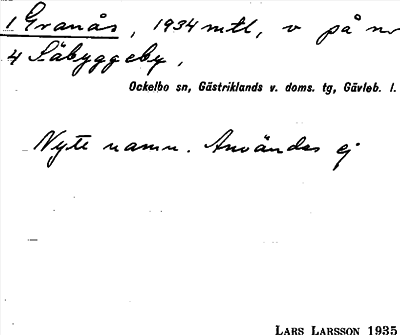 1 Granås, 1934 mtl, v på nr
4 Säbyggeby,
Ockelbo sn, Gästriklands v. doms. tg, Gävleb. l.
Nytt namn. Användes ej
LARS LARSSON 1935